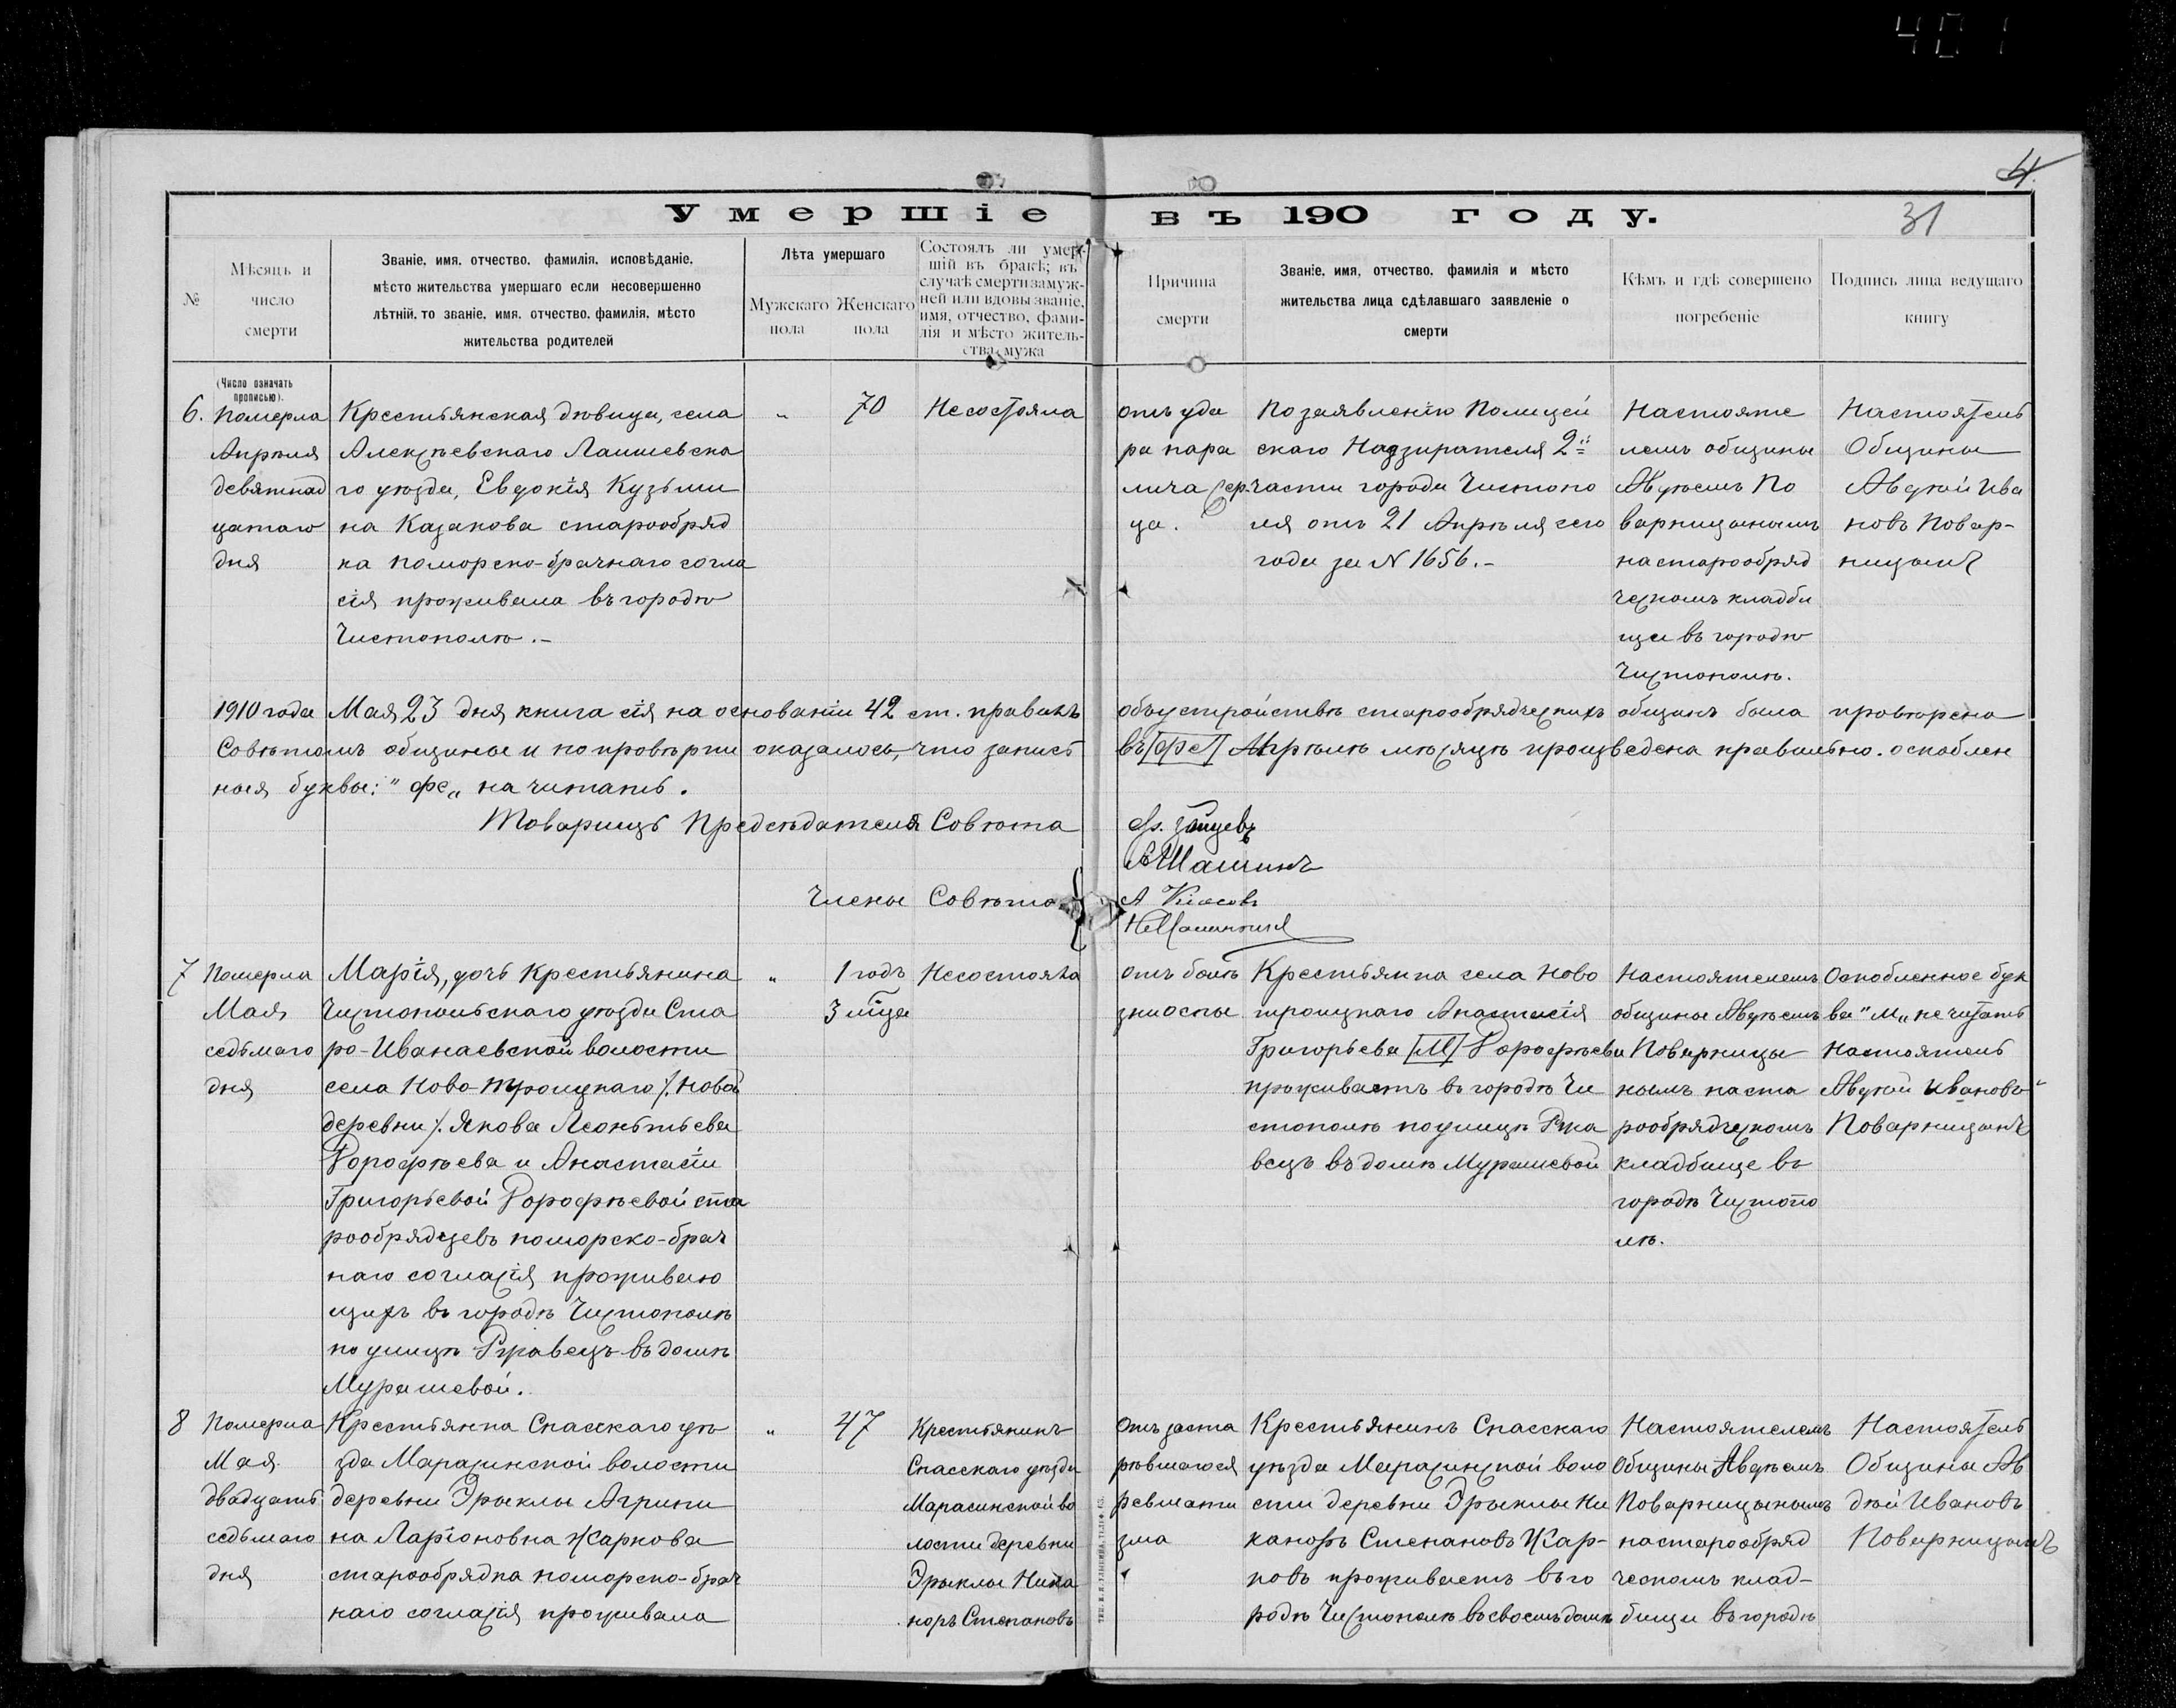 401
4
Умершіе въ 190 году.
31
№
Мѣсяцъ и
число
смерти
Званіе, имя, отчество, фамилія, исповѣданіе,
мѣсто жительства умершаго если несовершенно
лѣтній, то званіе, имя, отчество, фамилія, мѣсто
жительства родителей
Лѣта умершаго
Мужскаго
пола
Женскаго
пола
Состоялъ ли умер-
шій въ бракѣ; въ
случаѣ смерти замуж-
ней или вдовы званіе,
имя, отчество, фами-
лія и мѣсто житель-
ства мужа
Причина
смерти
Званіе, имя, отчество, фамилія и мѣсто
жительства лица сдѣлавшаго заявленіе о
смерти
Кѣмъ и гдѣ совершено
погребеніе
Подпись лица ведущаго
книгу
(Число означать
прописью).
6.
Померла
Апрѣля
девятнад
цатаго
дня
Крестьянская дѣвица, села
Алексѣевскаго Лаишевска
го уѣзда, Евдокія Кузьми
на Казакова старообряд
ка поморско-брачнаго согла
сія проживала въ городѣ
Чистополѣ.-
"
70
Не состояла
отъ уда
ра пара
лича сер.
ца.
По заявленію Полицей
скаго Надзирателя 2й
части города Чистопо
ля отъ 21 Апрѣля сего
года за N 1656.-
Настояте
лемъ общины
Авдѣемъ По
варницынымъ
на старообряд
ческомъ кладби
ще въ городѣ
Чистополѣ.
Настоятель
Общины
Авдѣй Ива
новъ Повар-
ницынъ
1910 года Мая 23 дня книга сія на основаніи 42 ст. правилъ объ устройствѣ старообрядческихъ общинъ была провѣрена
Совѣтомъ общины и по провѣрки оказалось, что запись въ [фе] Апрѣлѣ мѣсяцѣ произведена правильно. оскоблен
ныя буквы: "фе" не читать.
Товарищъ Предсѣдателя Совѣта
Зайцевъ
Шашинъ
Члены Совѣта
А
7
Померла
Мая
седьмаго
дня
Марія, дочь крестьянина
Чистопольскаго уѣзда Ста
ро-Иванаевской волости
села Ново-Троицкаго /. Новой
деревни /. Якова Леонтьева
Дорофѣева и Анастасіи
Григорьевой Дорофѣевой ста
рообрядцевъ поморско-брач
наго согласія проживаю
щихъ въ городѣ Чистополѣ
по улицѣ Ржавецъ въ домѣ
Мурашевой.
"
1 годъ
3 мѣсца
Не состояла
отъ болѣ
зни оспы
Крестьянка села Ново
троицкаго Анастасія
Григорьева [М] Дорофѣева
проживаетъ въ городѣ Чи
стополѣ по улицѣ Ржа
вецъ въ домѣ Мурашевой
Настоятелемъ
общины Авдѣемъ
Поварницы
нымъ на ста
рообрядческомъ
кладбище въ
городѣ Чистопо
лѣ.
Оскобленное бук
ва "М" не читать
Настоятель
Авдѣй Ивановъ
Поварницынъ
8
Померла
Мая
двадцать
седьмаго
дня
Крестьянка Спасскаго уѣ
зда Марасинской волости
деревни Эрыклы Агрипи
на Ларіоновна Жаркова
старообрядка поморско-брач
наго согласія проживала
"
47
Крестьянинъ
Спасскаго уѣзда
Марасинской во
лости деревни
Эрыклы Ника
норъ Степановъ
Отъ заста
рѣвшагося
ревмати
зма
Крестьянинъ Спасскаго
уѣзда Марасинской воло
сти деревни Эрыклы Ни
каноръ Степановъ Жар-
ковъ проживаетъ въ го
родѣ Чистополѣ въ своемъ домѣ
Настоятелемъ
Общины Авдѣемъ
Поварницынымъ
на старообряд
ческомъ клад-
бищи въ городѣ
Настоятель
Общины Ав
дѣй Ивановъ
Поварницынъ